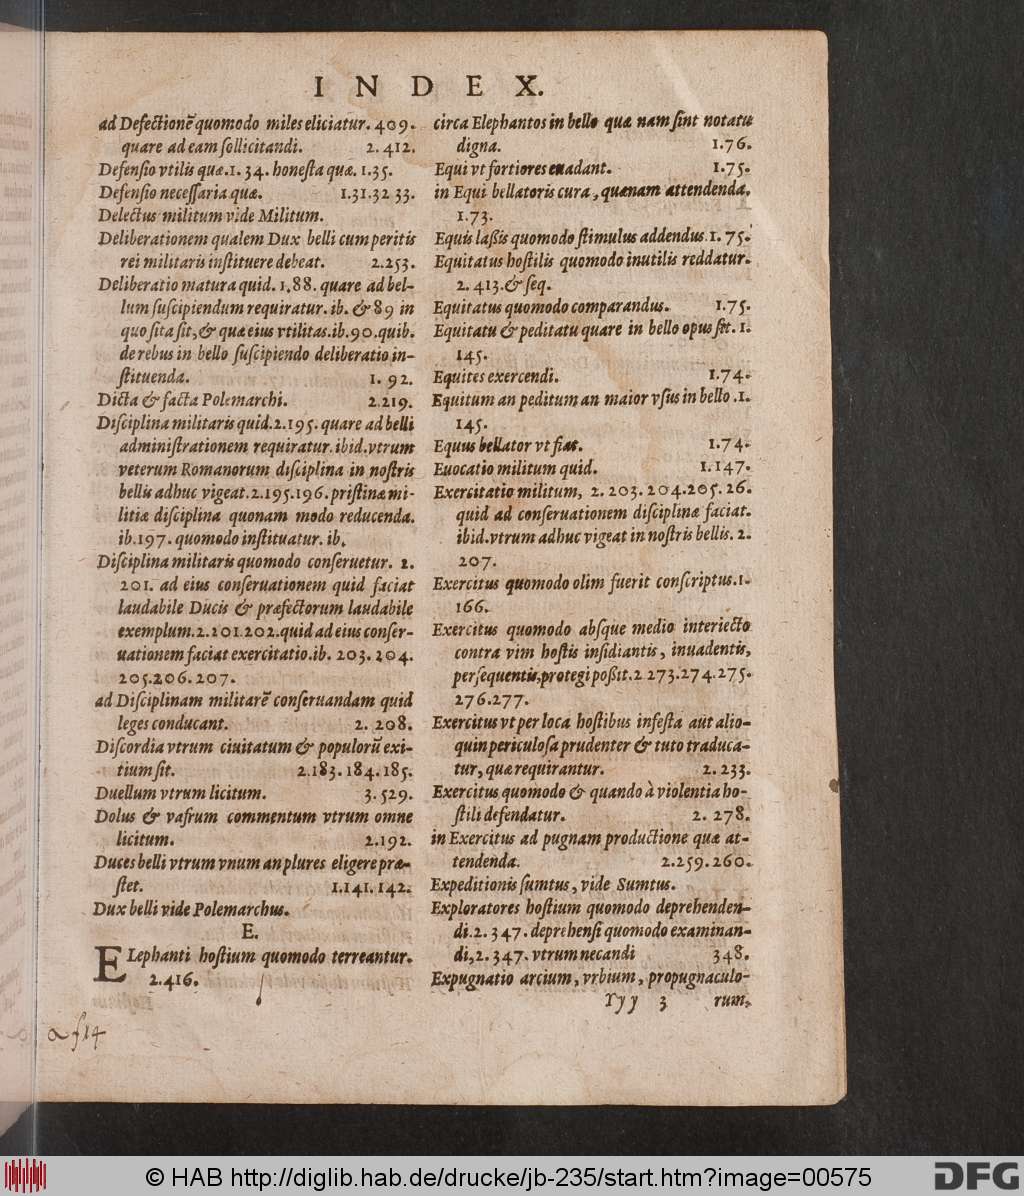 INDEX.
ad Defectionē quomodo miles eliciatur. 409.
quare ad eam ſollicitandi. 2. 412.
Defenſio vtilis quæ. 1. 34. honeſta quæ. 1. 35.
Defenſio neceſſaria quæ. 1.31.32 33.
Delectus militum vide Militum.
Deliberationem qualem Dux belli cum peritis
rei militaris inſtituere debeat. 2.253.
Deliberatio matura quid. 1,88. quare ad bel-
lum ſuſcipiendum requiratur. ib. & 89 in
quo ſita ſit, & quæ eius vtilitas. ib. 90. quib.
de rebus in bello ſuſcipiendo deliberatio in-
ſtituenda. 1. 92.
Dicta & facta Polemarchi. 2.219.
Diſciplina militaris quid. 2. 195. quare ad belli
adminiſtrationem requiratur. ibid. vtrum
veterum Romanorum diſciplina in noſtris
bellis adhuc vigeat. 2.195.196. priſtinæ mi-
litiæ diſciplina quonam modo reducenda.
ib. 197. quomodo inſtituatur. ib.
Diſciplina militaris quomodo conſeruetur. 2.
201. ad eius conſeruationem quid faciat
laudabile Ducis & præfectorum laudabile
exemplum. 2.201.202. quid ad eius conſer-
uationem faciat exercitatio. ib. 203. 204.
205.206. 207.
ad Diſciplinam militarē conſeruandam quid
leges conducant. 2. 208.
Diſcordia vtrum ciuitatum & populorū exi-
tium ſit. 2.183. 184. 185.
Duellum vtrum licitum. 3. 529.
Dolus & vafrum commentum vtrum omne
licitum. 2.192.
Duces belli vtrum vnum an plures eligere præ-
ſtet. 1.141. 142.
Dux belli vide Polemarchus.
E.
ELephanti hoſtium quomodo terreantur.
2.416.
circa Elephantos in bello quæ nam ſint notatu
digna. 1.76.
Equi vt fortiores euadant. 1.75.
in Equi bellatoris cura, quænam attendenda.
1.73.
Equis laßis quomodo ſtimulus addendus. 1. 75.
Equitatus hoſtilis quomodo inutilis reddatur.
2. 413. & ſeq.
Equitatus quomodo comparandus. 1.75.
Equitatu & peditatu quare in bello opus ſit. 1.
145.
Equites exercendi. 1.74.
Equitum an peditum an maior vſus in bello. 1.
145.
Equus bellator vt fiat. 1.74.
Euocatio militum quid. 1. 147.
Exercitatio militum, 2. 203. 204.205. 26.
quid ad conſeruationem diſciplinæ faciat.
ibid. vtrum adhuc vigeat in noſtris bellis. 2.
207.
Exercitus quomodo olim fuerit conſcriptus. 1.
166.
Exercitus quomodo abſque medio interiecto
contra vim hoſtis inſidiantis, inuadentis,
perſequentis, protegi poßit. 2 273.274.275.
276.277.
Exercitus vt per loca hoſtibus infeſta aut alio-
quin periculoſa prudenter & tuto traduca-
tur, quæ requirantur. 2. 233.
Exercitus quomodo & quando à violentia ho-
ſtili defendatur. 2. 278.
in Exercitus ad pugnam productione quæ at-
tendenda. 2.259.260.
Expeditionis ſumtus, vide Sumtus.
Exploratores hoſtium quomodo deprehenden-
di. 2. 347. deprehenſi quomodo examinan-
di, 2. 347. vtrum necandi 348.
Expugnatio arcium, vrbium, propugnaculo-
Yyy 3 rum,
© HAB http://diglib.hab.de/drucke/jb-235/start.htm?image=00575
DFG